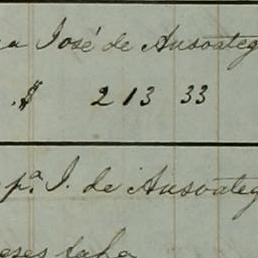 a José de Ansoateg
$ 213 33
pª. J. de Ansoateg